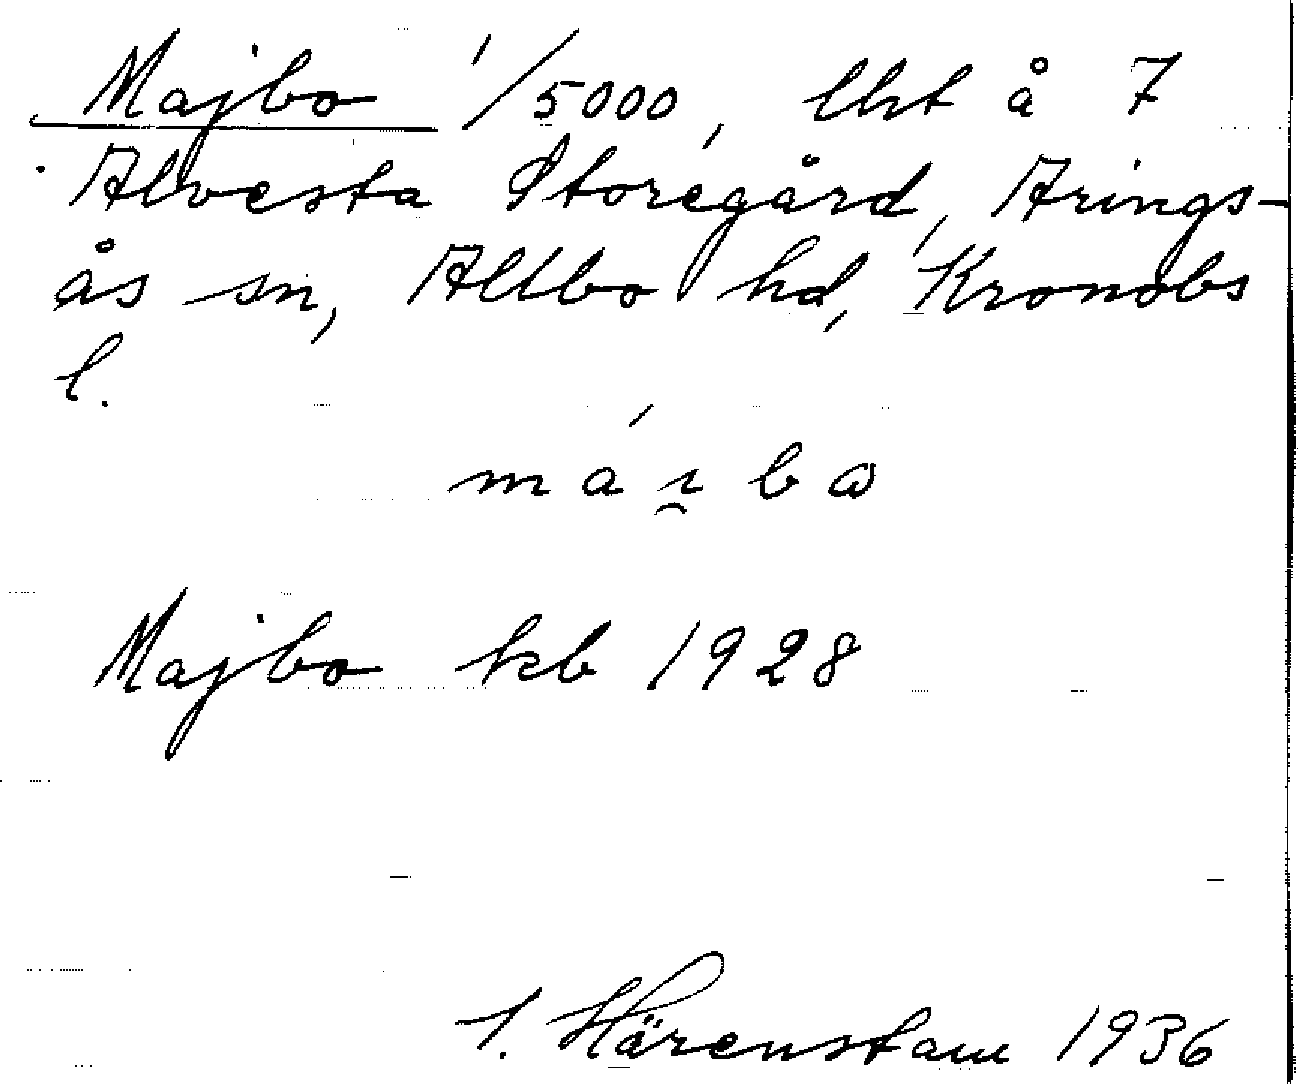 Majbo 1/5000, lht å 7
Alvesta Storegård, Arings-
ås sn, Allbo hd, Kronobs
l.
má i̯ b ω
Majbo kb 1928
Härenstam 1936